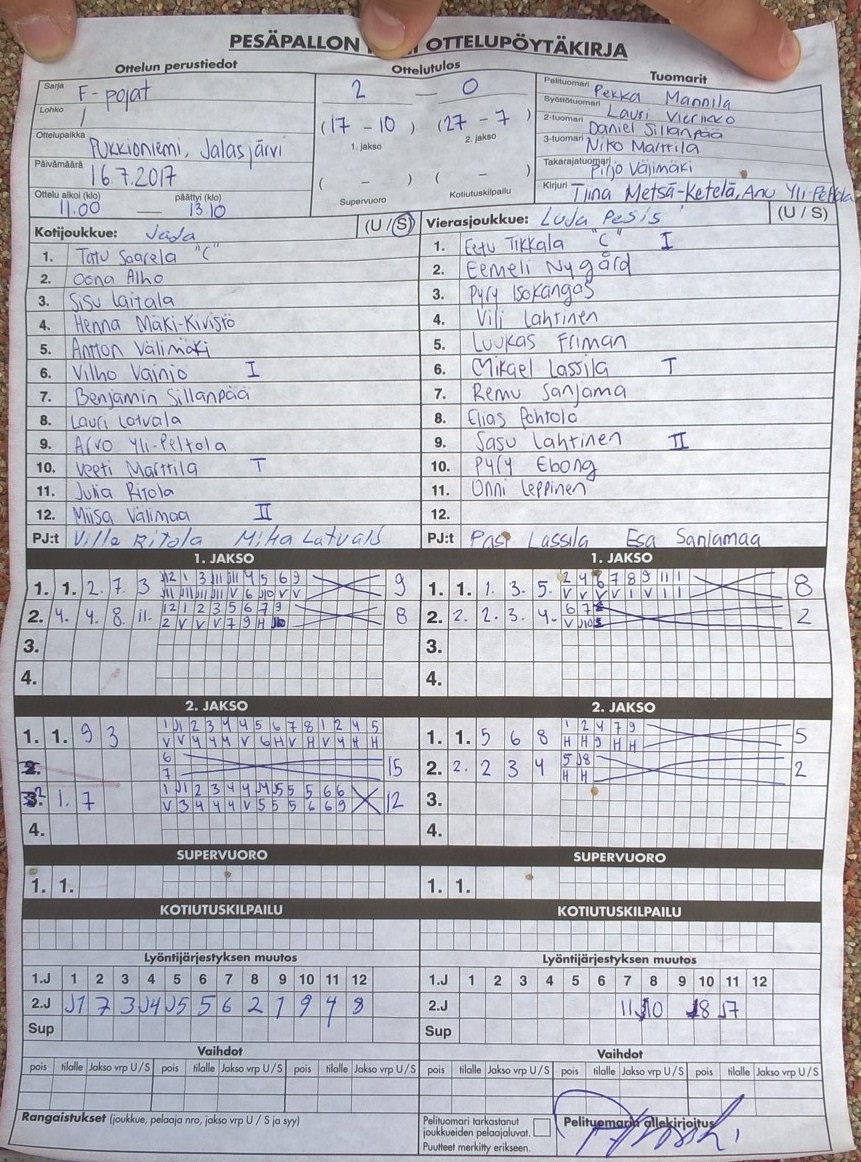 PESÄPALLON OTTELUPÖYTÄKIRJA
Ottelun perustiedot
Ottelutulos
Tuomarit
Sarja F-pojat
Lohko /
Ottelupaikka Pukkioniemi, Jalasjärvi
Päivämäärä 16.7.2017
Ottelu alkoi (klo) päättyi (klo)
11.00 — 13.10
2 — 0
(17 - 10) (27 - 7)
1. jakso 2. jakso
( - ) ( - )
Supervuoro Kotiutuskilpailu
Pelituomari Pekka Mannila
Syöttötuomari Lauri
2-tuomari Daniel Sillanpää
3-tuomari Niko Marttila
Takarajatuomari Pirjo Välimäki
Kirjuri Tiina Metsä-Ketelä, Anu Yli-Peltola
Kotijoukkue: JaJa (U / S)
1. Tatu Saarela "C"
2. Oona Alho
3. Sisu Laitala
4. Henna Mäki-Kivistö
5. Anton Välimäki
6. Vilho Vainio I
7. Benjamin Sillanpää
8. Lauri Latvala
9. Arvo Yli-Peltola
10. Veeti Marttila T
11. Julia Ritola
12. Miisa Välimaa II
PJ:t Ville Ritola Mika Latvala
Vierasjoukkue: LuJa Pesis (U / S)
1. Eetu Tikkala "C" I
2. Eemeli Nygård
3. Pyry Isokangas
4. Vili Lahtinen
5. Luukas Friman
6. Mikael Lassila T
7. Remu Sanjama
8. Elias Pohtola
9. Sasu Lahtinen II
10. Pyry Ebong
11. Onni Leppinen
12.
PJ:t Pasi Lassila Esa Sanjamaa
1. JAKSO
1. 1. 2. 7. 3 9
2. 4. 4. 8. 11. 8
12 1 2 3 5 6 7 9
3.
4.
1. JAKSO
1. 1. 1. 3. 5. 8
2 4 6 7 8 9 11 1
2. 2. 2. 3. 4. 2
3.
4.
2. JAKSO
1. 1. 9 3
1 J1 2 3 4 4 5 6 7 8 1 2 4 5
V V 4 4 4 V 6 H V H V 4 H H
2.
6
7
15
1. 7 12
4.
2. JAKSO
1. 1. 5 6 8 5
1 2 4 7 9
H H 9 H H
2. 2. 2 3 4 2
5 J8
H H
3.
4.
SUPERVUORO
1. 1.
SUPERVUORO
1. 1.
KOTIUTUSKILPAILU
KOTIUTUSKILPAILU
Lyöntijärjestyksen muutos
1.J 1 2 3 4 5 6 7 8 9 10 11 12
2.J J1 7 3 J4 J5 5 6 2 1 9 4 8
Sup
Lyöntijärjestyksen muutos
1.J 1 2 3 4 5 6 7 8 9 10 11 12
2.J 11 J10 J8 J7
Sup
Vaihdot
pois tilalle Jakso vrp U / S pois tilalle Jakso vrp U / S pois tilalle Jakso vrp U / S
Vaihdot
pois tilalle Jakso vrp U / S pois tilalle Jakso vrp U / S pois tilalle Jakso vrp U / S
Rangaistukset (joukkue, pelaaja nro, jakso vrp U / S ja syy)
Pelituomari tarkastanut
joukkueiden pelaajaluvat.
Puutteet merkitty erikseen.
Pelituomarin allekirjoitus